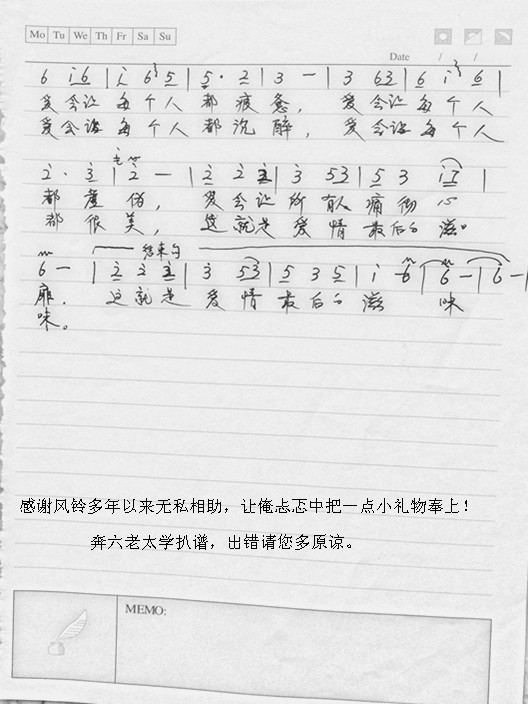 Mo Tu We Th Fr Sa Su
Date / /
6 i6 | i 6 5 | 5 · 2 | 3 — | 3 63 | 6 i 6 |
爱会让每个人都疲惫，爱会让每个人
爱会让每个人都沉醉，爱会让每个人
2 · 3 | 2 — | 2 2 3 | 3 53 | 5 3 i7 |
都虚伪，爱会让所有人痛彻心
都很美，这就是爱情最后的滋。
结束句
6 — | 2 2 3 | 3 53 | 5 3 5 | i 6 | 6 — | 6 — |
扉，这就是爱情最后的滋味
味。
感谢风铃多年以来无私相助，让俺忐忑中把一点小礼物奉上！
奔六老太学扒谱，出错请您多原谅。
MEMO: